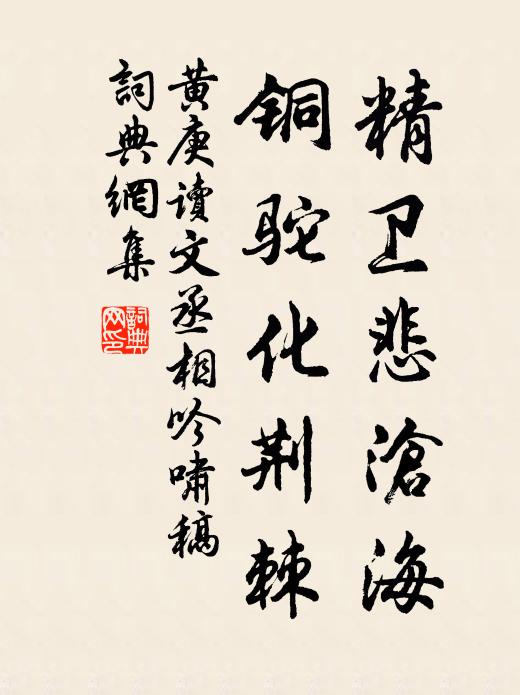 精卫悲滄海
铜驼化荆棘
黄庚读文丞相吟啸稿
詞典網集
詞典网印